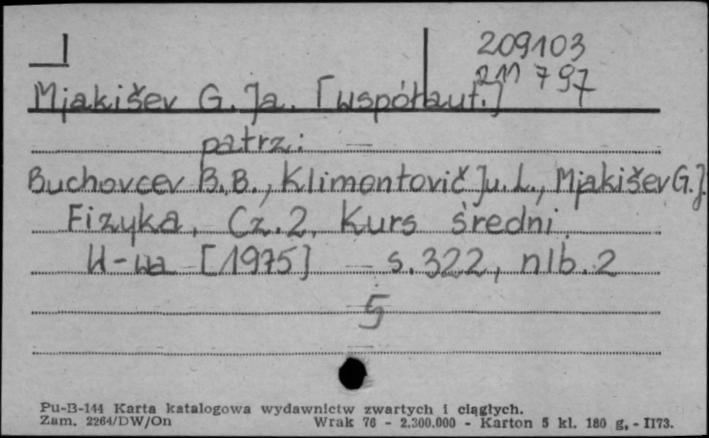 209103
211797
Mjakišev G. Ja. [współaut.]
patrz:
Buchovcev B.B., Klimontovič Ju. L., Mjakišev G. J.
Fizyka, Cz. 2, Kurs średni.
W-wa [1975] s. 322, nlb. 2
5
Pu-B-144 Karta katalogowa wydawnictw zwartych i ciągłych.
Zam. 2264/DW/On Wrak 76 - 2.300.000 - Karton 5 kl. 180 g, - II73.